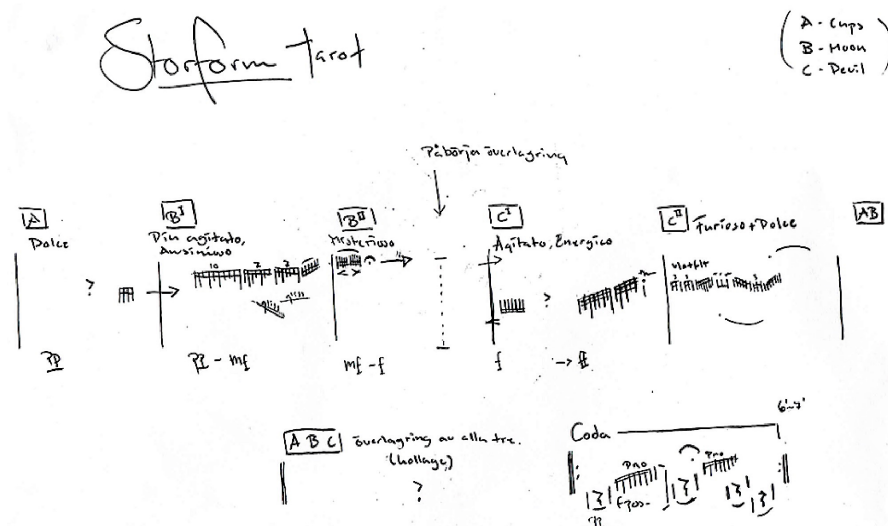 Storform Tarot
A - Cups
B - Moon
C - Devil
Påbörja överlagring
A
Dolce
?
PP
B I
Più agitato,
Ansioso
10 7 7
PP - mf
B II
Misterioso
mf - f
C I
Agitato, Energico
?
f → ff
C II
Furioso + Dolce
AB
A B C överlagring av alla tre.
(kollage)
?
Coda
6'-7'
Pno
Pno